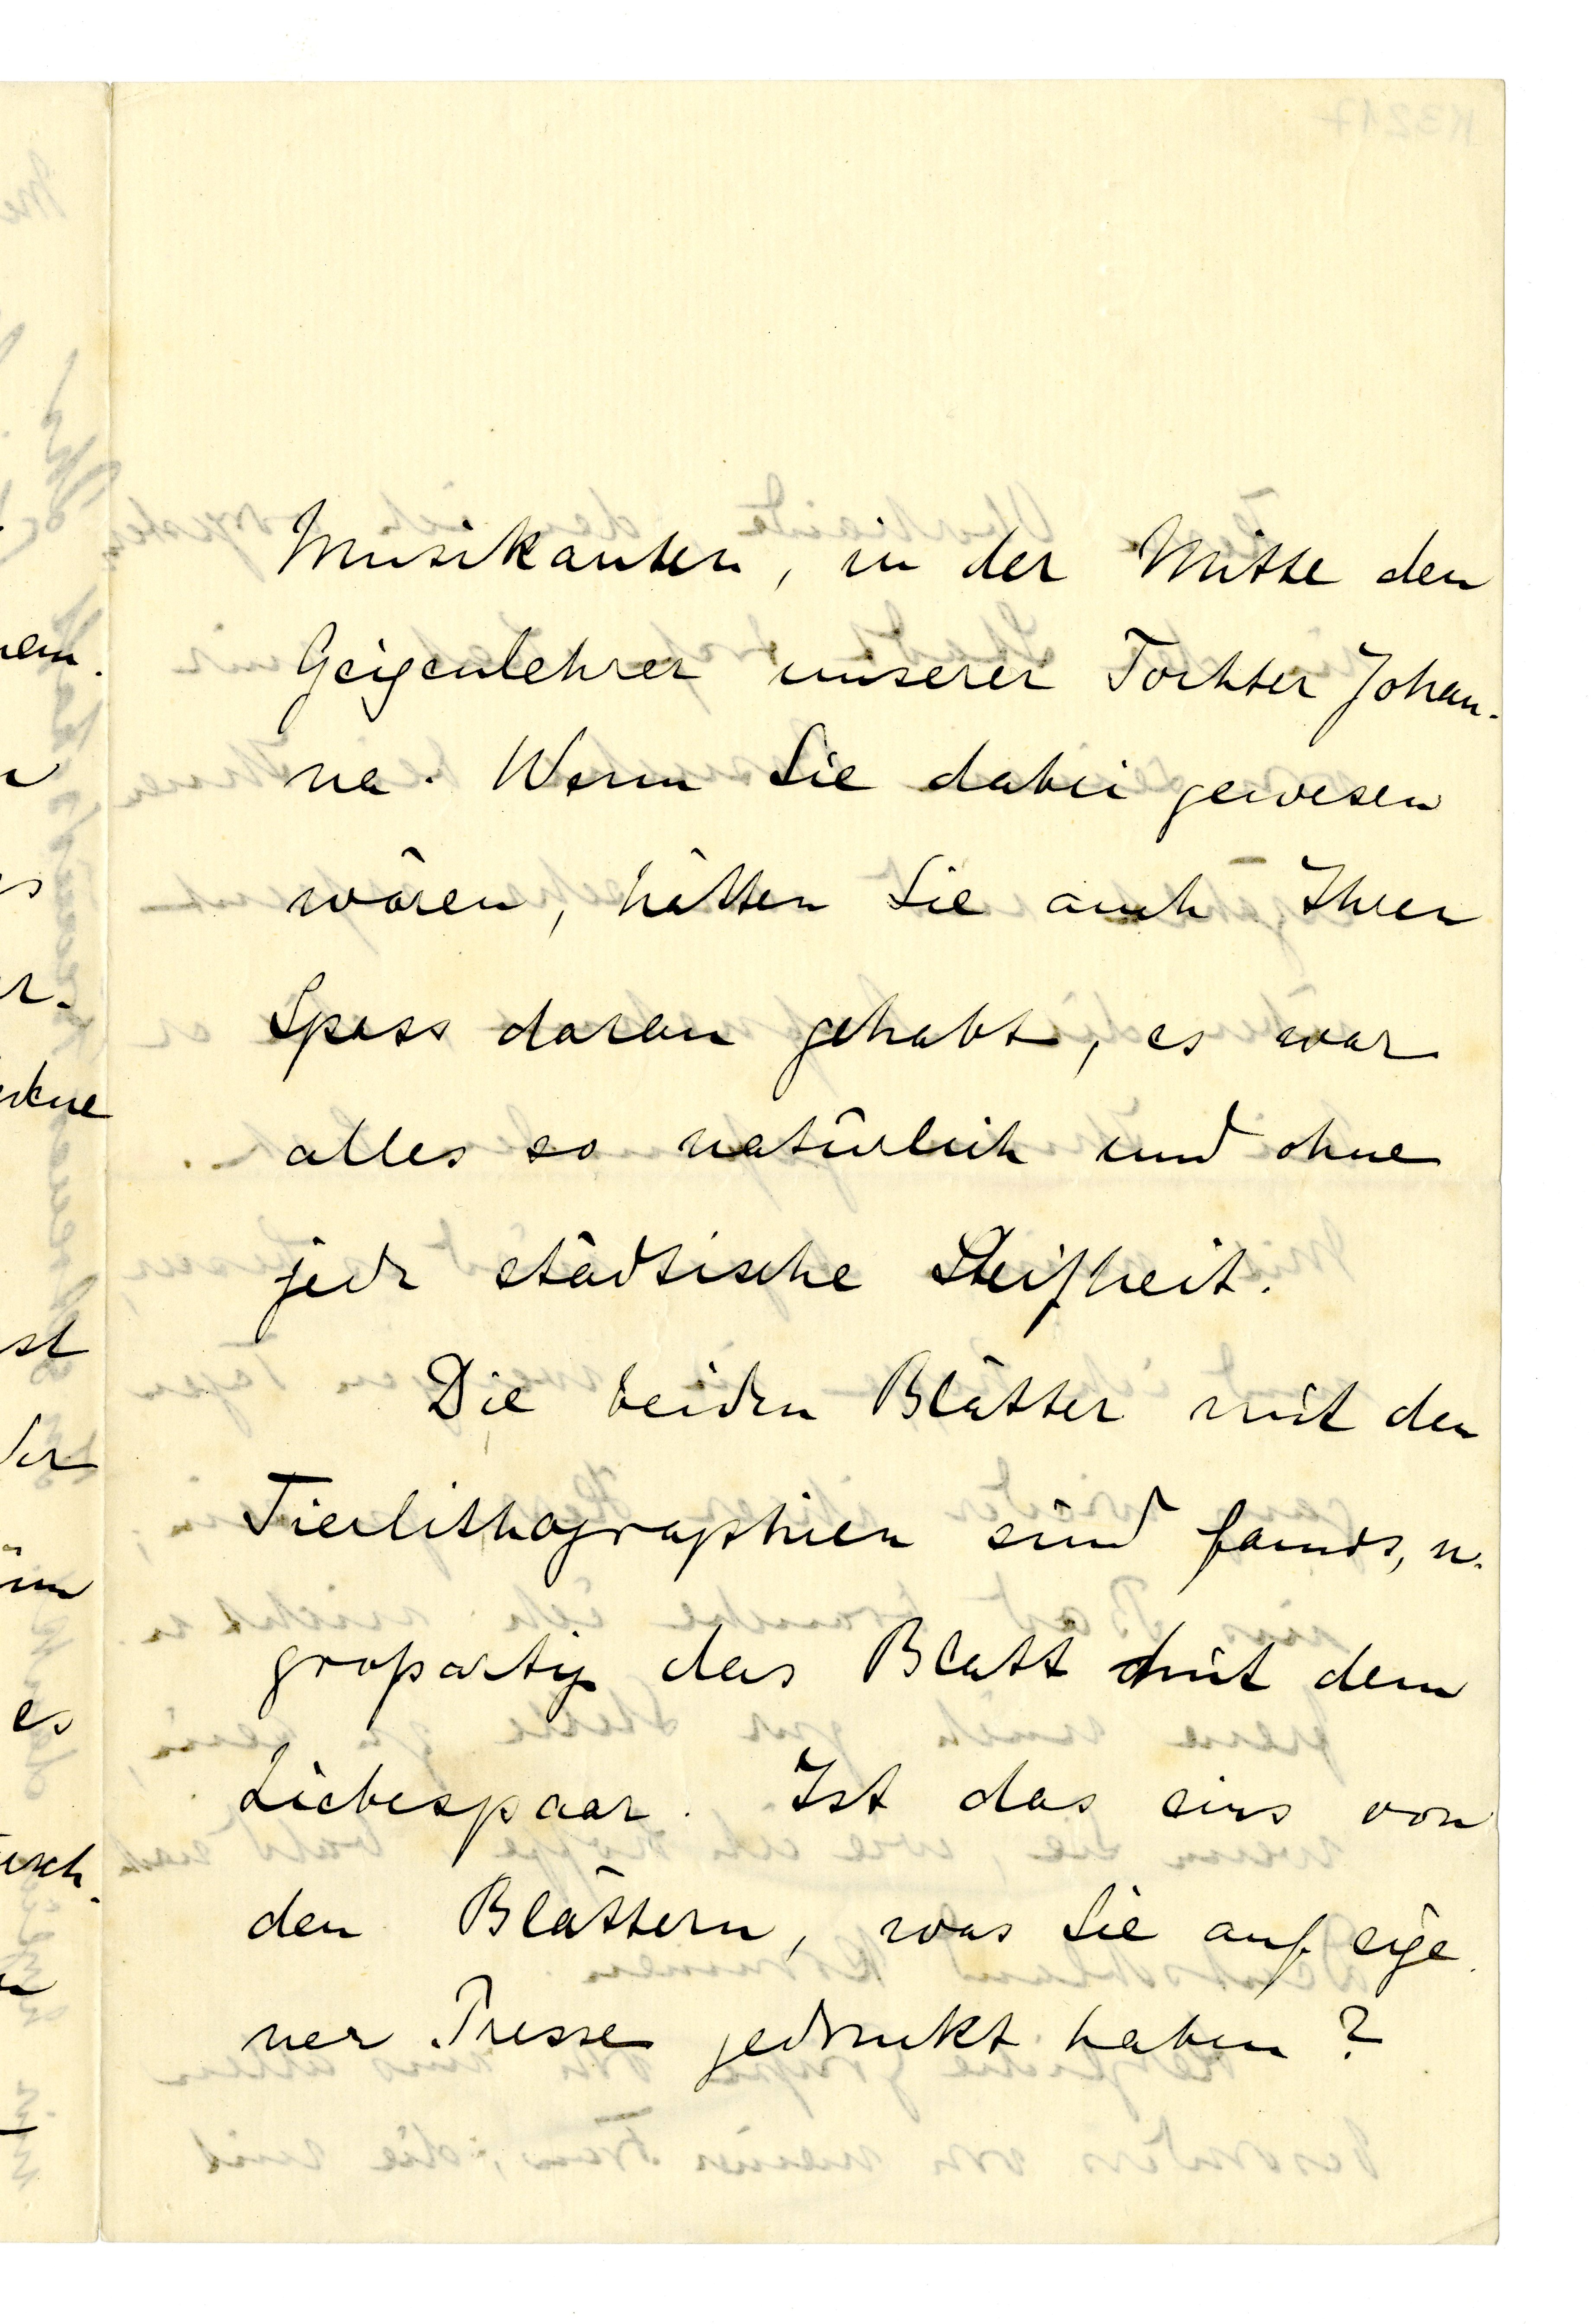 Musikanten, in der Mitte den
Geigenlehrer unserer Tochter Johan-
na. Wenn Sie dabei gewesen
wären, hätten Sie auch Ihren
Spass daran gehabt, es war
alles so natürlich und ohne
jede städtische Steifheit.
Die beiden Blätter mit den
Tierlithographien sind famos, u.
großartig das Blatt mit dem
Liebespaar. Ist das eins von
den Blättern, was Sie auf eige-
ner Presse gedruckt haben?